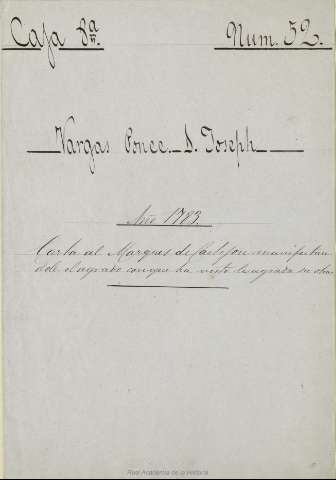 Caja 8ª Num. 52.
Vargas Ponce. D. Joseph
Año 1783.
Carta al Marques de manifestan
dole el agrado con que ha visto su obra
Real Academia de la Historia